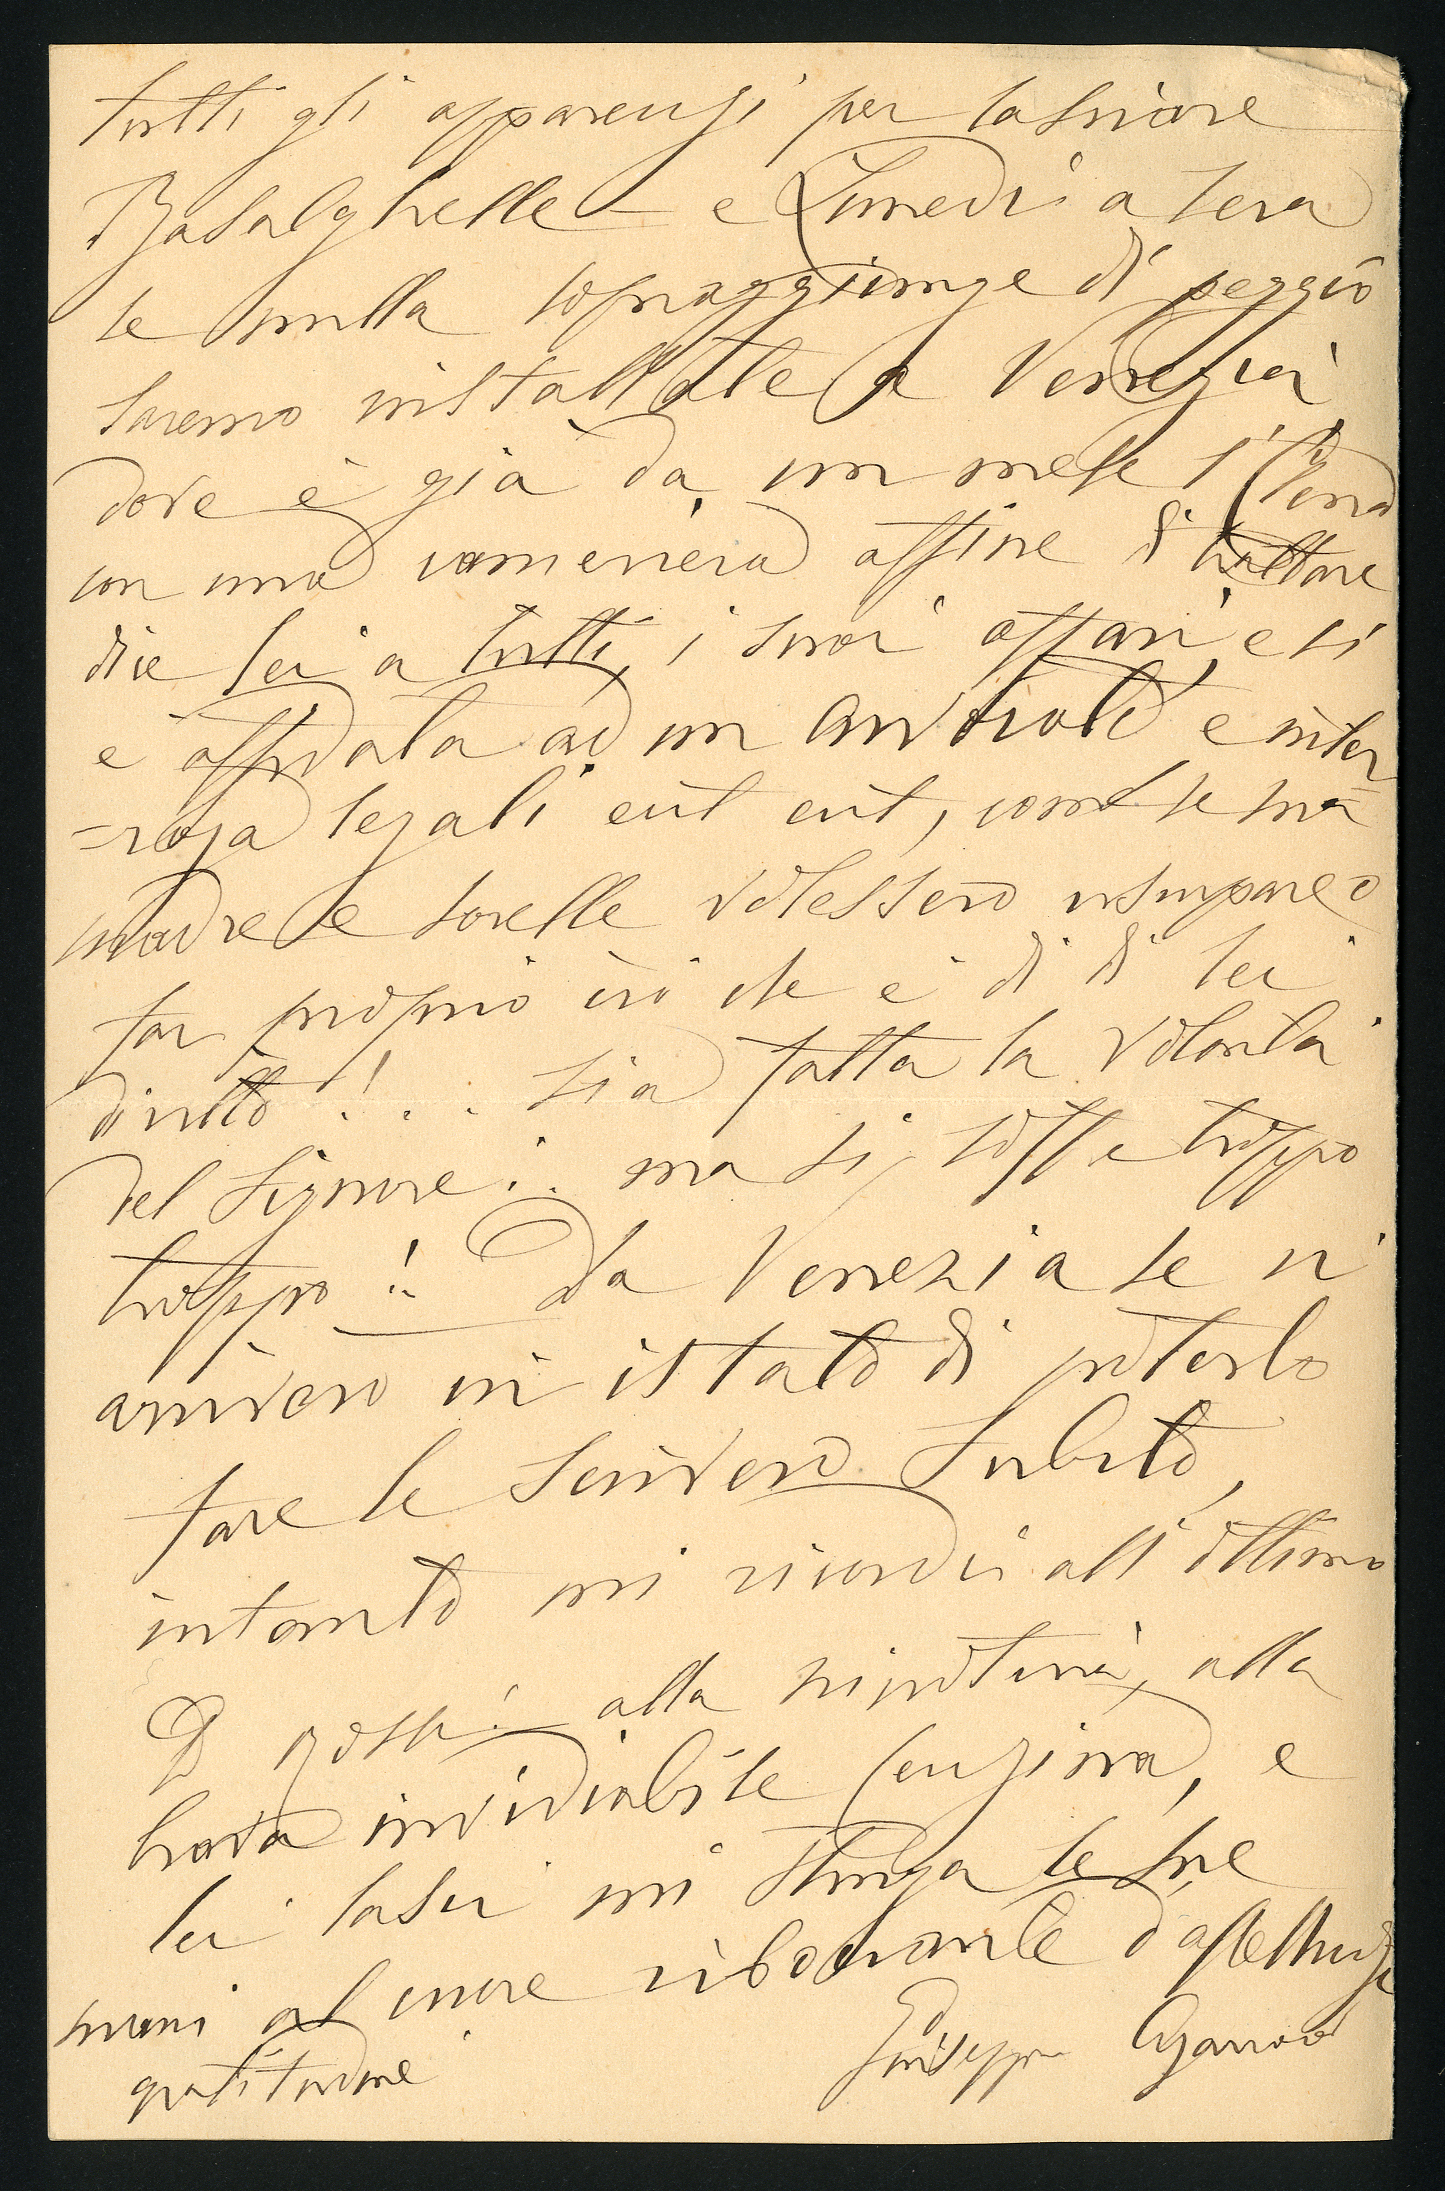 tutti gli apparenzi per lasciare
Basalghelle — e Lunedì a sera
se nulla sopraggiunge di peggio
saremo installate a Venezia,
dove è già da un mese l'
con una cameriera affine di trattare
dic lei a tutti, i suoi affari, e si
è affidata ad un avvocato e inter
=roga legali ecct ecct, come se ma
madre e sorelle volessero usurpare o
far proprio ciò che è di di lei
diritto!... sia fatta la volontà
del Signore!.. ma si soffre troppo
troppo!! — Da Venezia se vi
arriverò in istato di poterlo
fare le scriverò subito,
intanto mi ricordi all'ottimo
D Rossi — alla nipotina, alla
brava invidiabile Cenzina, e
lei lasci mi stringa le sue
mani al cuore riboccante d'affettuosa
gratitudine
Giuseppina